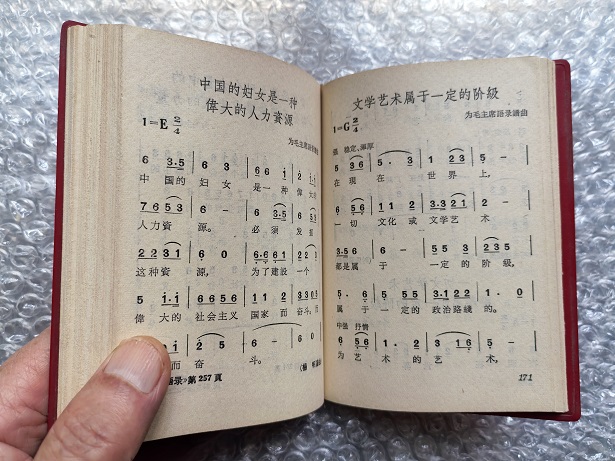 中国的妇女是一种
偉大的人力資源
1=E 2/4
为毛主席語录譜
6 3·5 6 3 6 6 1 2 1·
中 国的 妇 女 是 一 种 偉 大
7 6 5 3 6 - 6 3·5
人力資 源。 必 須 发
2 2 3 1 6 0 6·6 6 1
这种資 源, 为了建設 一个
5 1·1 6 6 5 6 3 5 3
偉 大的 社会主义 国家 而 奋斗,
2 5 6 - 6·
而 奋 斗。
录》第 257 頁
文学艺术属于一定的阶級
1=G 2/4
为毛主席語录譜曲
强 稳定、渾厚
5 3 5 6 1 - 1 2 3 5 -
在 現 在 世 界 上,
6 5 6 1 1 2 3·3 2 1 5 6
一 切 文化 或 文学艺 术
3·5 6 6 - 5 5 3 2 3 5
都是属 于 一定的 阶 級,
5· 6 1 - 1 2 3·1 2 2 1· 0
属 于 一定的 政治路綫 的。
中强 抒情
为 艺术 的 艺 术,
171